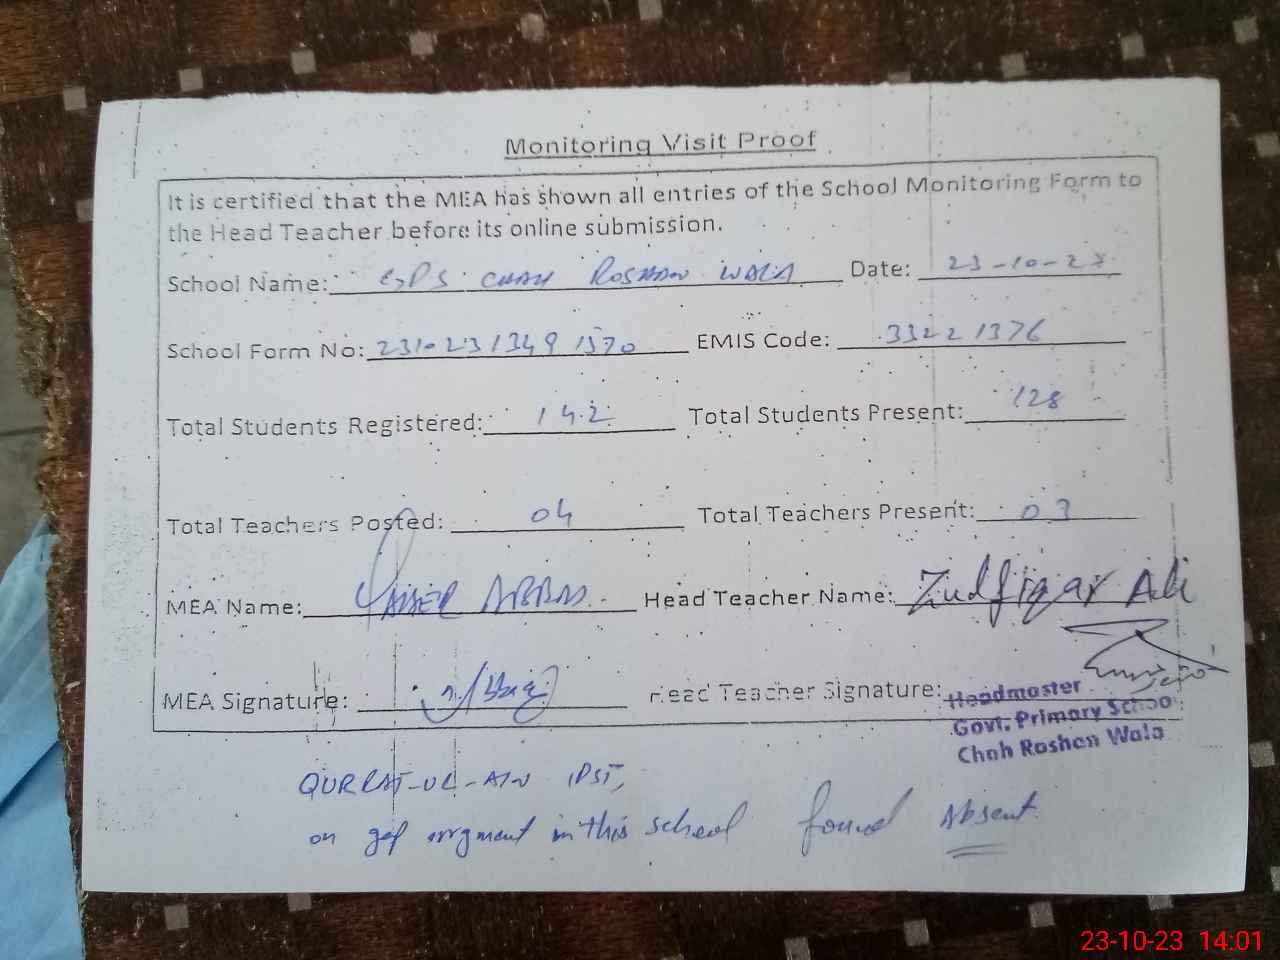 Monitoring Visit Proof
It is certified that the MEA has shown all entries of the School Monitoring Form to
the Head Teacher before its online submission.
School Name: GPS CHAH ROSHAN WALA Date: 23-10-23
School Form No: 2310231349 1370 EMIS Code: 33221376
Total Students Registered: 142 Total Students Present: 128
Total Teachers Posted: 04 Total Teachers Present: 03
MEA Name: YASSER ABBAS Head Teacher Name: Zulfiqar Ali
MEA Signature: Head Teacher Signature:
Headmaster
Govt. Primary School
Chah Roshan Wala
QURRAT-UL-AIN PST,
on gep in this school found Absent.
23-10-23 14:01